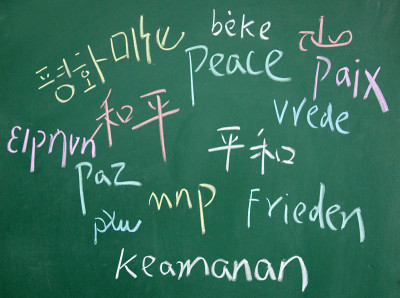 béke
평화
peace
paix
vrede
和平
ειρηνη
平和
paz
Frieden
Keamanan